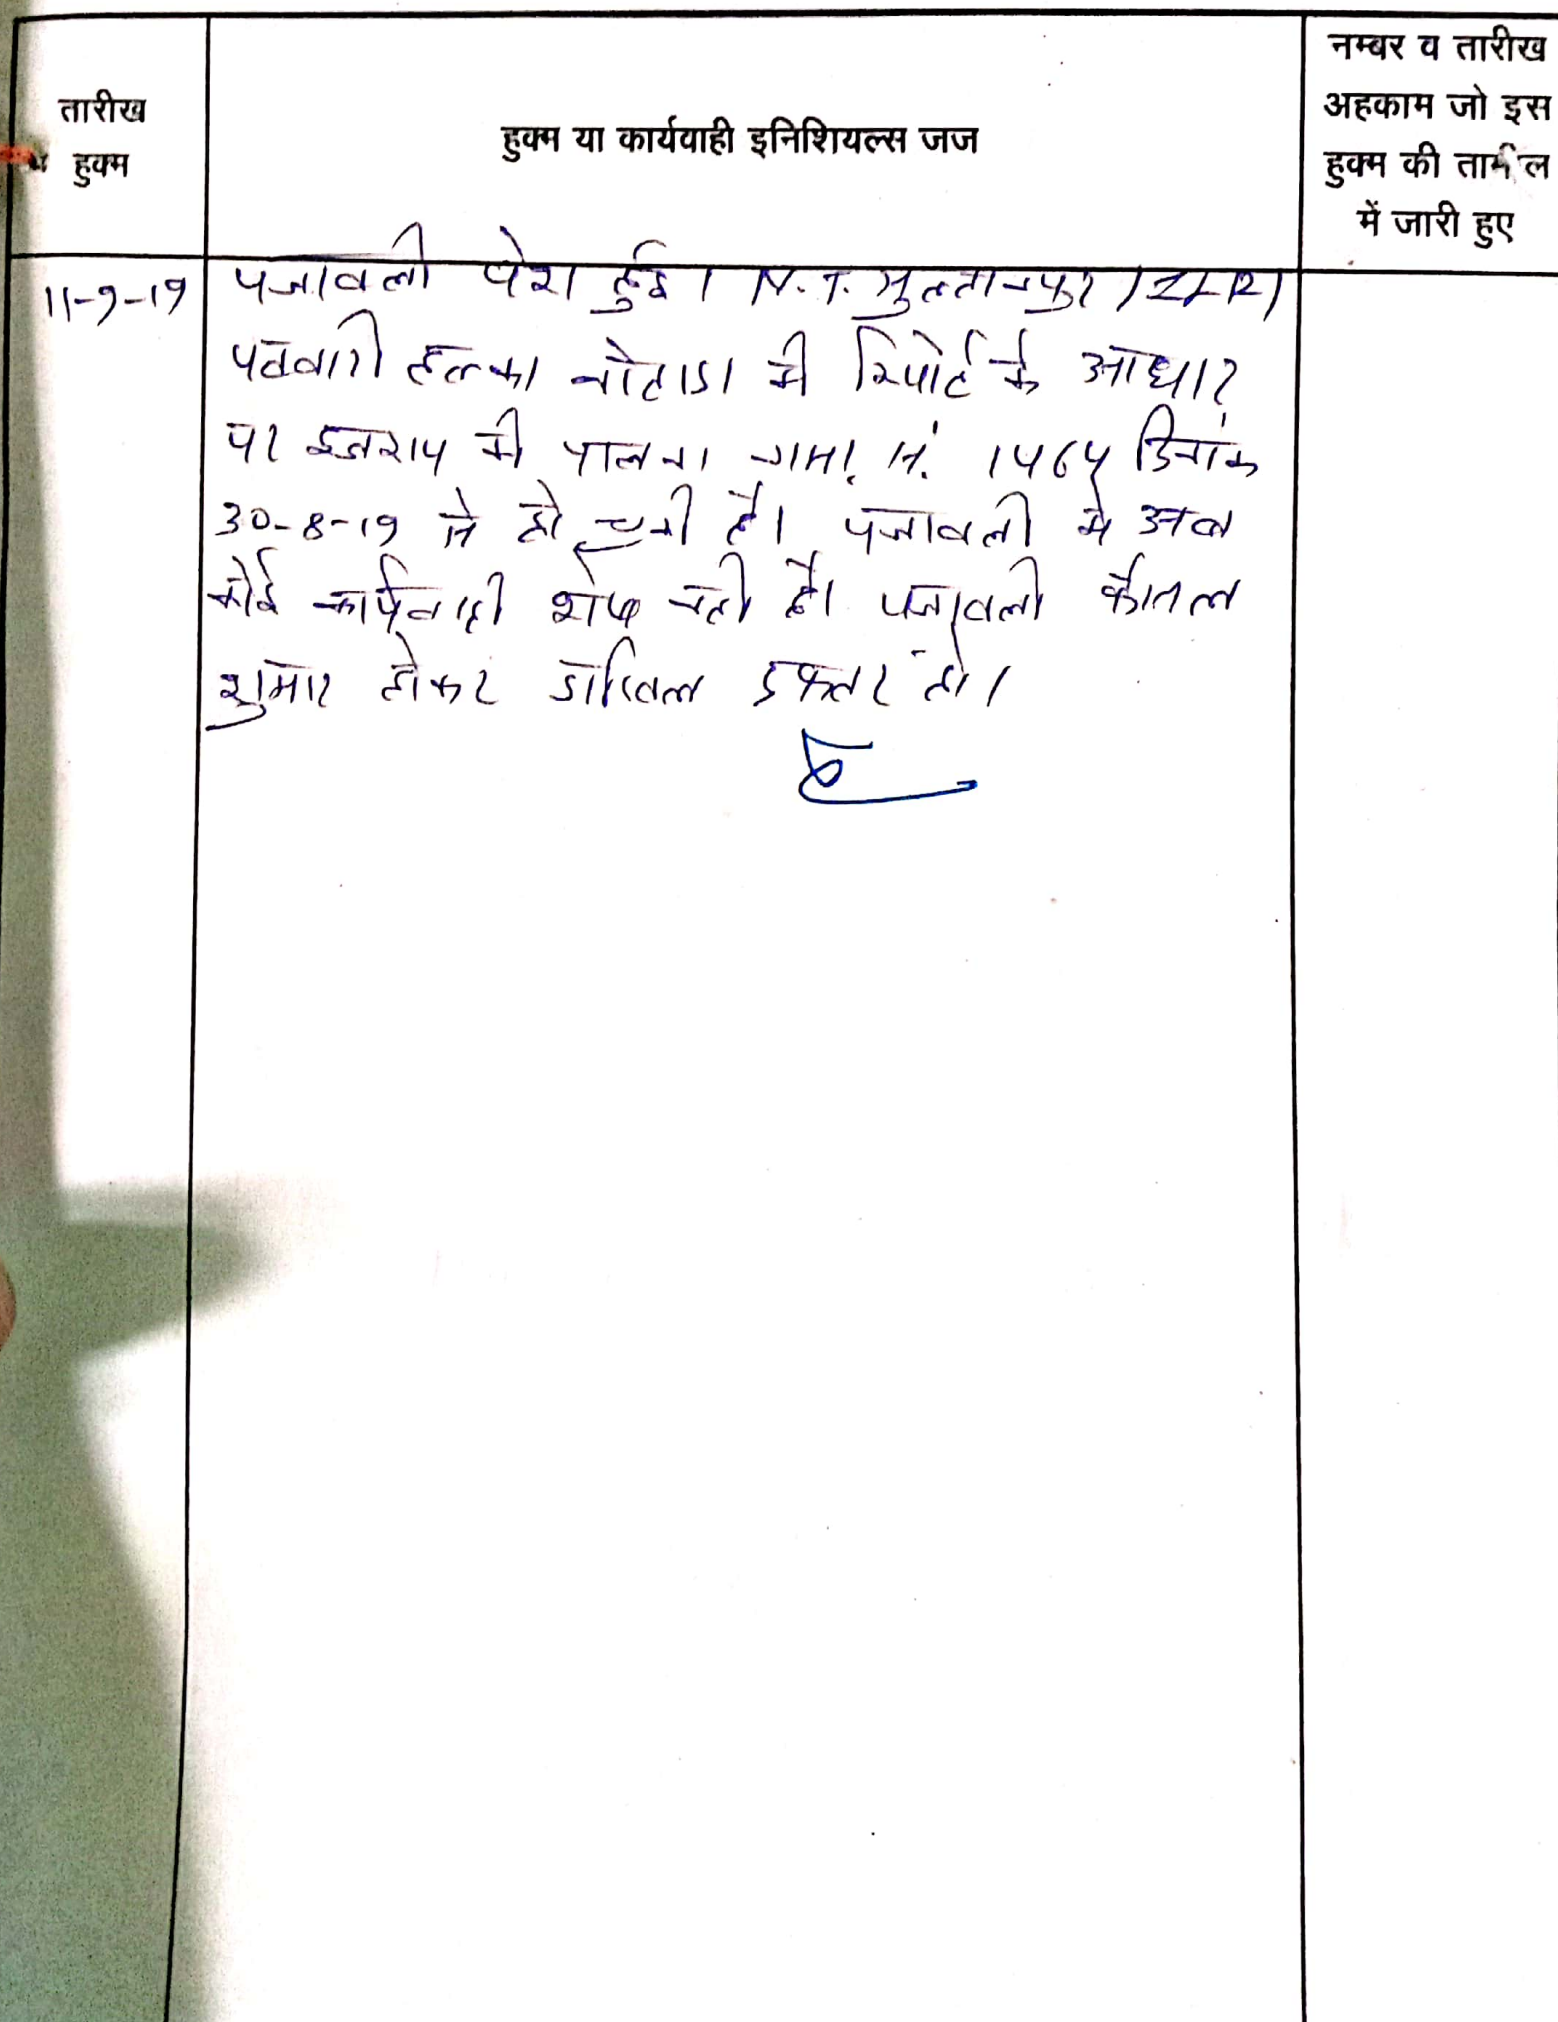 तारीख
हुक्म
हुक्म या कार्यवाही इनिशियल्स जज
नम्बर व तारीख
अहकाम जो इस
हुक्म की तामील
में जारी हुए
11-9-19
पत्रावली पेश हुई। N.T. सुल्तानपुर / ILR /
पटवारी हल्का नोताडा की रिपोर्ट के आधार
पर इजराय की पालना नामा. नं. 1464 दिनांक
30-8-19 से हो चुकी है। पत्रावली मे अब
कोई कार्यवाही शेष नही है। पत्रावली फैसल
शुमार होकर दाखिल दफ्तर हो।